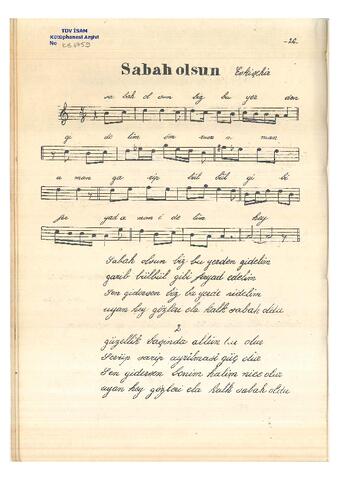 TDV İSAM
Kütüphanesi Arşivi
No
-26-
Sabah olsun Eskişehir
sa bah ol sun biz bu yer den
gi de lim am man a man
a man ga rip bül bül gi bi
fer yad a man i de lim hey
Sabah olsun biz bu yerden gidelim
garib bülbül gibi feryad edelim
Sen gidersen biz bu yerde nidelim
uyan hey gözleri ela kalk sabah oldu
2
güzellik sağında altın olur
Sevüp sarıp ayrılması güç olur
Sen gidersen benim halim nice olur
uyan hey gözleri ela kalk sabah oldu